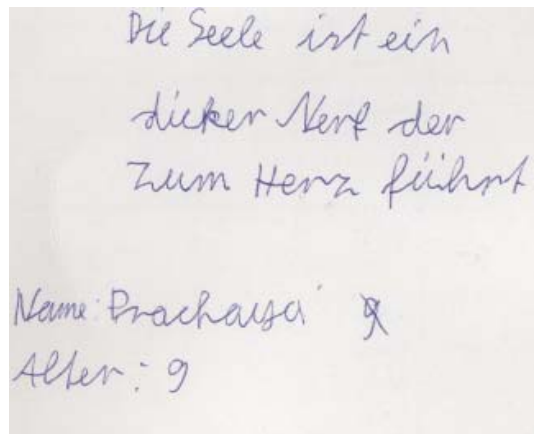 Die Seele ist ein
dicker Nerf der
Zum Herz führt
Name: Prachaya 9
Alter: 9